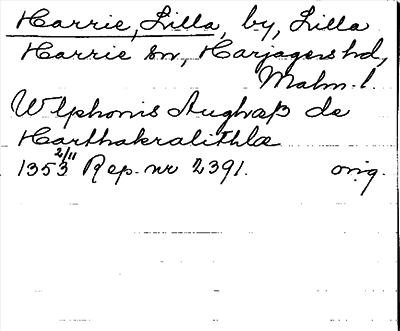 Harrie, Lilla, by, Lilla
Harrie sn, Harjagers hd,
Malm. l.
Wlphonis Aughæß de
Harthakralithlæ
1353 2/11 Rep. nr 2391. orig.